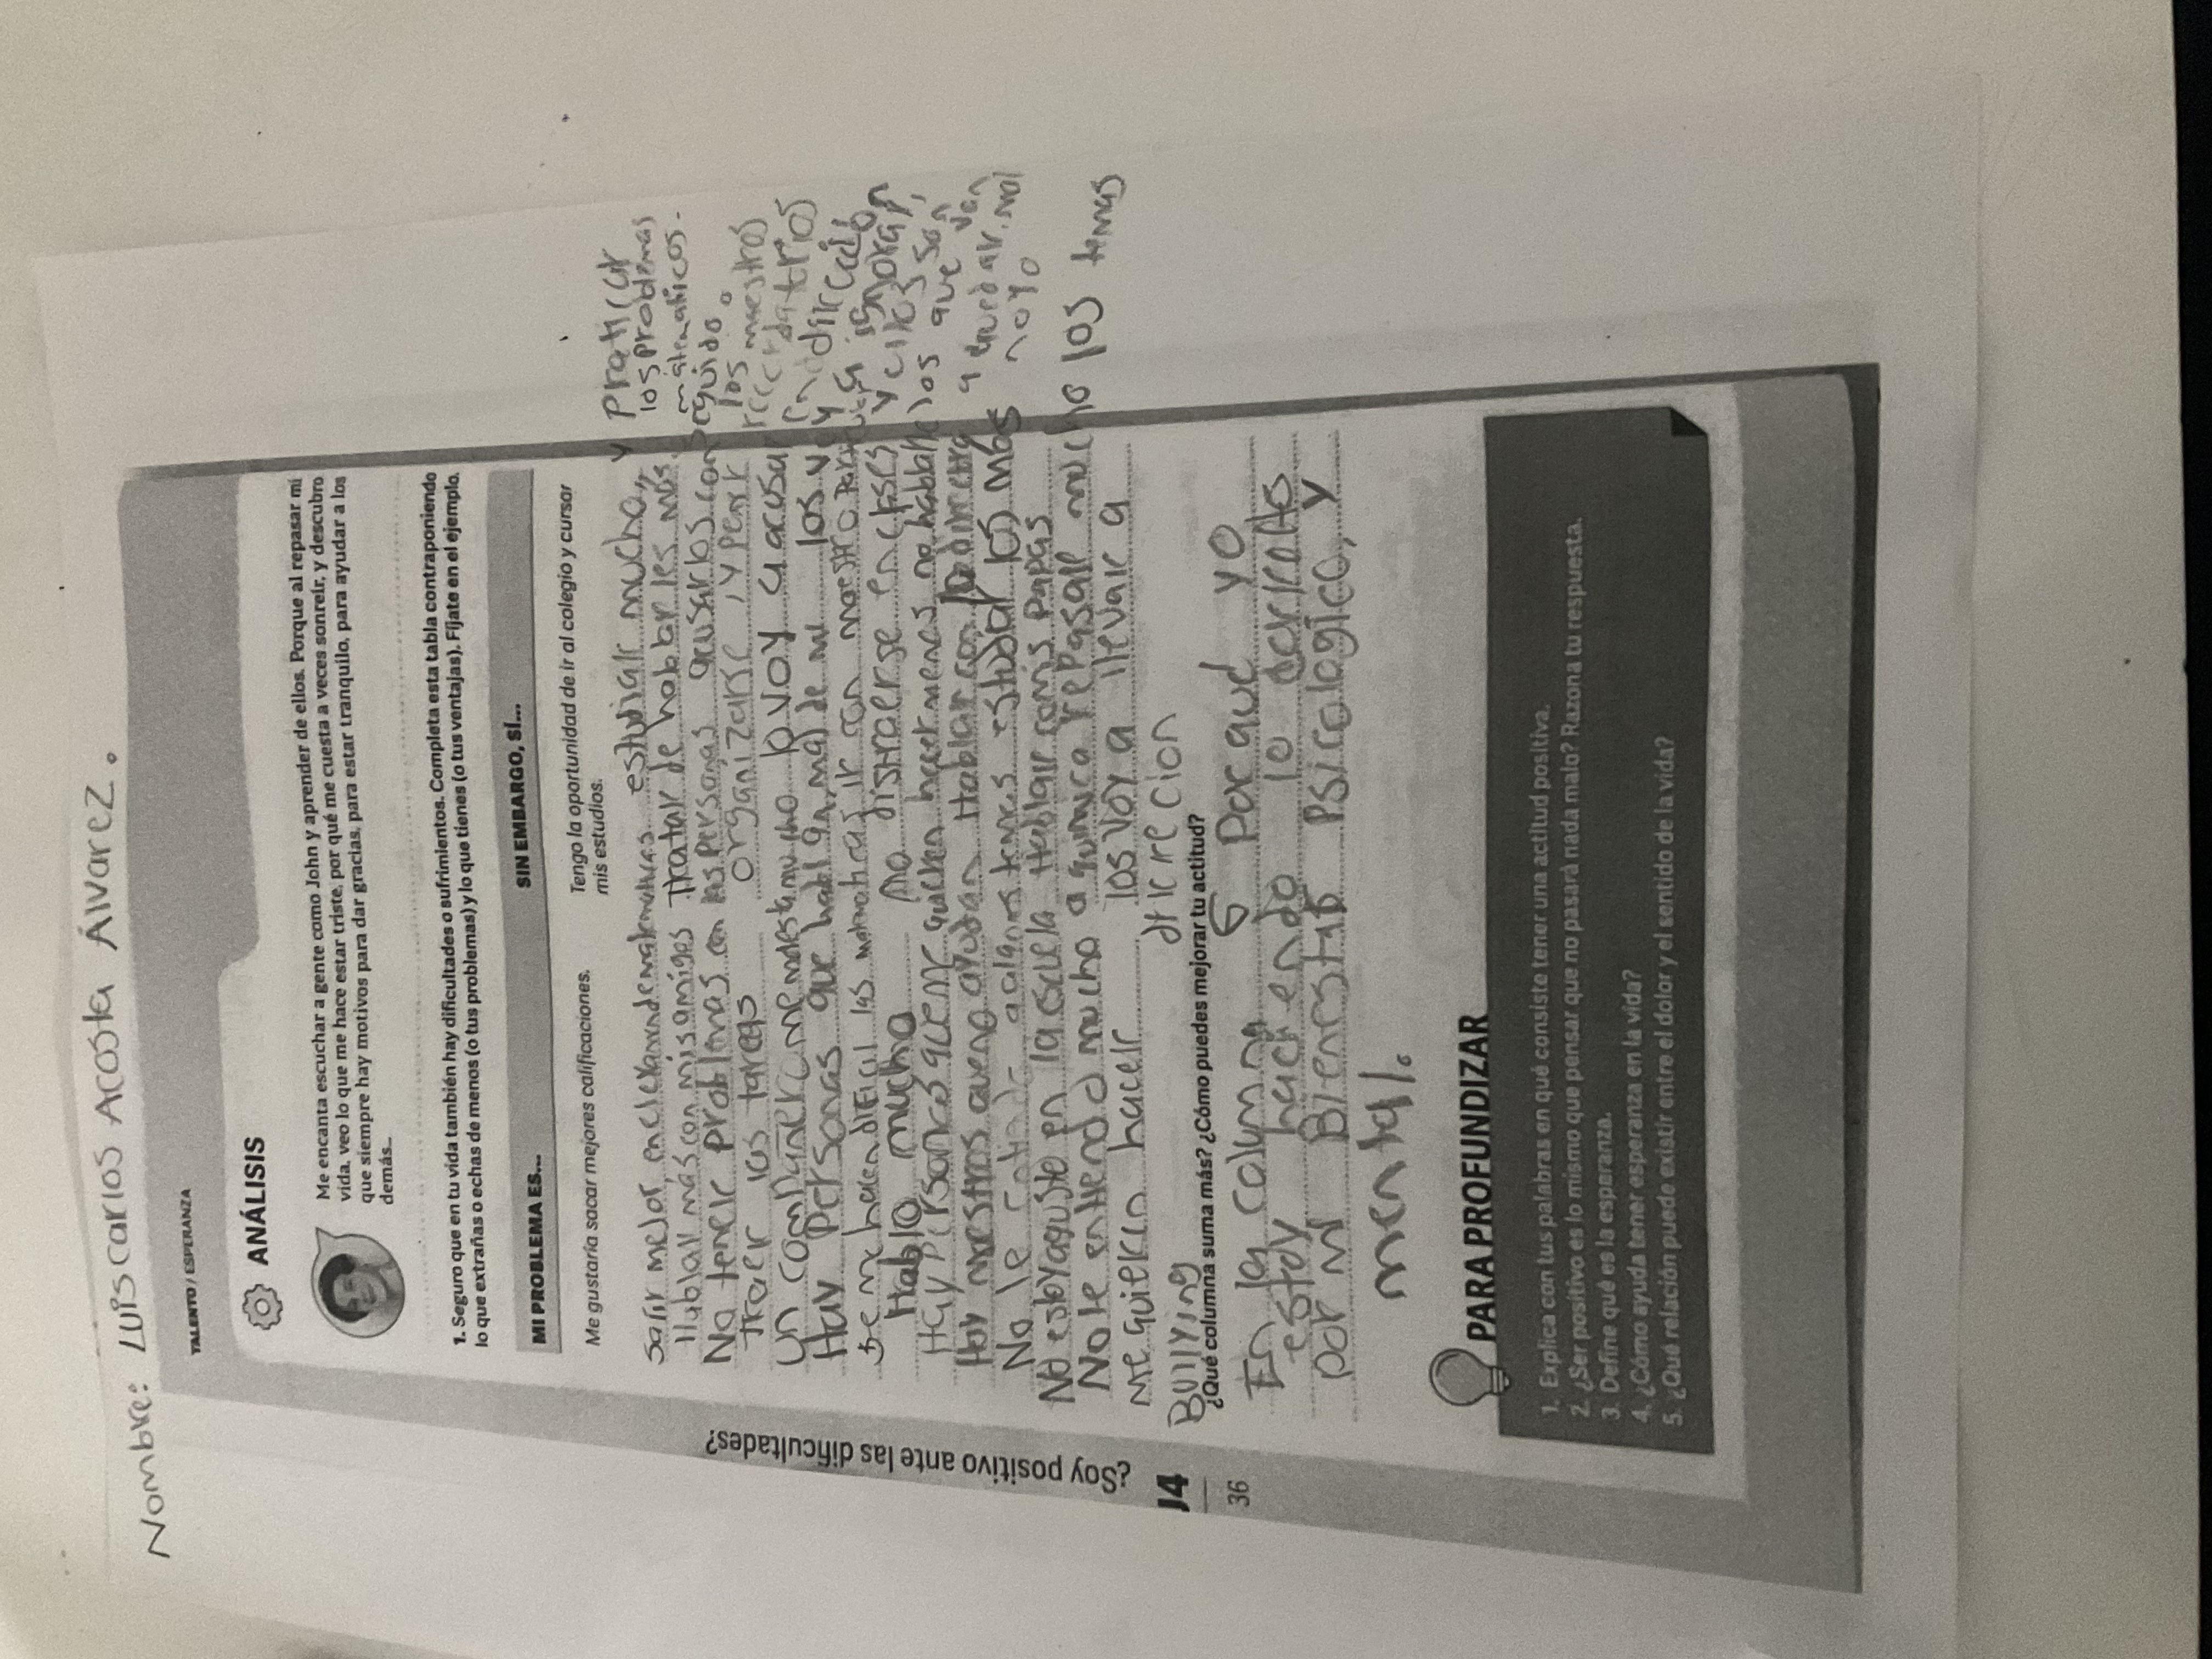 Nombre: Luis Carlos Acosta Álvarez.
TALENTO / ESPERANZA
ANÁLISIS
Me encanta escuchar a gente como John y aprender de ellos. Porque al repasar mi
vida, veo lo que me hace estar triste, por qué me cuesta a veces sonreír, y descubro
que siempre hay motivos para dar gracias, para estar tranquilo, para ayudar a los
demás...
1. Seguro que en tu vida también hay dificultades o sufrimientos. Completa esta tabla contraponiendo
lo que extrañas o echas de menos (o tus problemas) y lo que tienes (o tus ventajas). Fíjate en el ejemplo.
MI PROBLEMA ES...
SIN EMBARGO, SÍ...
Me gustaría sacar mejores calificaciones.
Tengo la oportunidad de ir al colegio y cursar
mis estudios.
Salir mejor en el examen de matematicas
estudiar mucho, y Praticar
los problemas
matematicos.
Hablar mas con mis amigos
Tratar de hablarles más.
No tener problemas con las personas
acusarlos con seguido.
Traer las tareas
organizarme, y
los maestros
Un compañero me molesta mucho
lo voy a acusar
Hay personas que hablan mal de mi
los voy
y direccion
Se me hacen dificil las matematicas
ir con maestro
Hablo mucho
no distraerse en clases
Hay personas que me quieren hacer menos
no hablarle
los que van
a quedar mal
no yo
Hay maestros que no ayudan
Hablar con
No le entiendo a algunos temas
estudiar los mas
No estoy agusto en la escuela
Hablar con mis papás
No le entiendo mucho a quimica
repasar mucho los temas
Me quieren hacer
Bullying
los voy a llevar a
direcion
¿Qué columna suma más? ¿Cómo puedes mejorar tu actitud?
En la columna 6 Porque yo
estoy haciendo lo
por mi Bienestar Psicologico, y
mental.
PARA PROFUNDIZAR
1. Explica con tus palabras en qué consiste tener una actitud positiva.
2. ¿Ser positivo es lo mismo que pensar que no pasará nada malo? Razona tu respuesta.
3. Define qué es la esperanza.
4. ¿Cómo ayuda tener esperanza en la vida?
5. ¿Qué relación puede existir entre el dolor y el sentido de la vida?
¿Soy positivo ante las dificultades?
J4
36